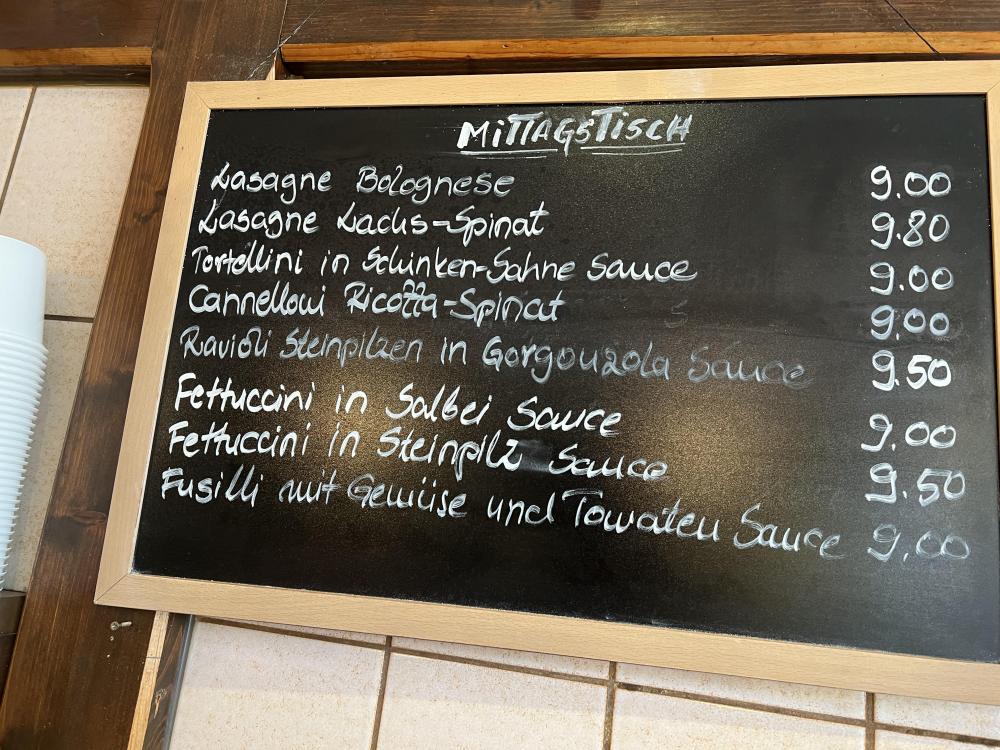 MITTAGSTISCH
Lasagne Bolognese 9.00
Lasagne Lachs-Spinat 9.80
Tortellini in Schinken-Sahne Sauce 9.00
Cannelloni Ricotta-Spinat 9.00
Ravioli Steinpilzen in Gorgonzola Sauce 9.50
Fettuccini in Salbei Sauce 9.00
Fettuccini in Steinpilz Sauce 9.50
Fusilli mit Gemüse und Tomaten Sauce 9,00